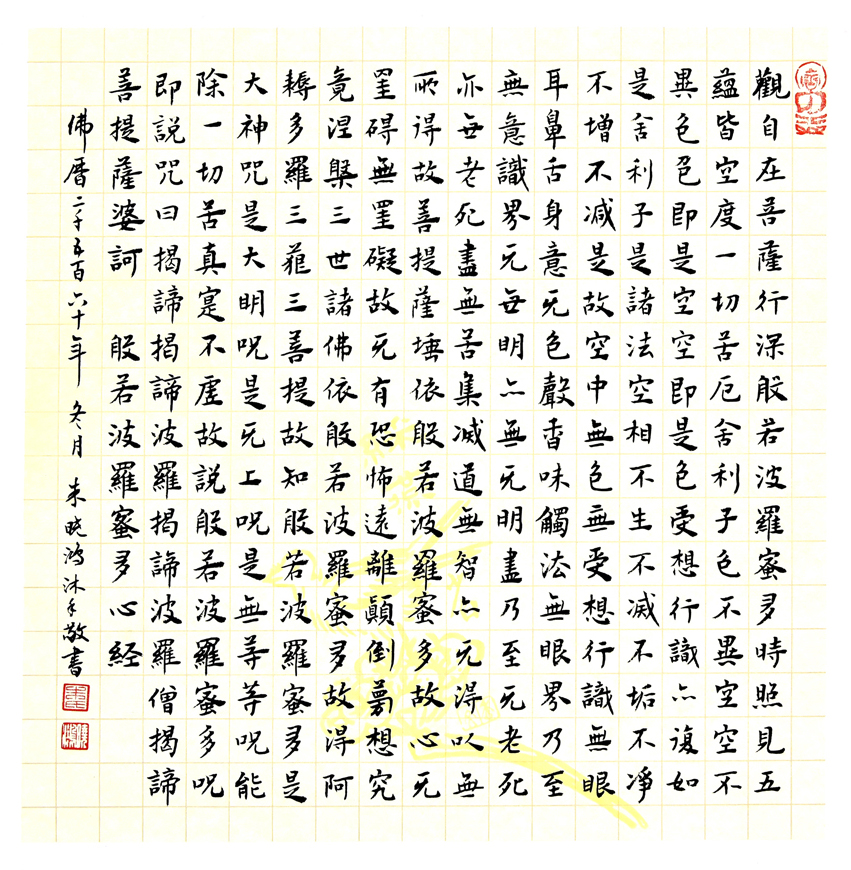 觀自在菩薩行深般若波羅蜜多時照見五
蘊皆空度一切苦厄舍利子色不異空空不
異色色即是空空即是色受想行識亦復如
是舍利子是諸法空相不生不滅不垢不淨
不增不減是故空中無色無受想行識無眼
耳鼻舌身意无色聲香味觸法無眼界乃至
無意識界无毋明亦無无明盡乃至无老死
亦毋老死盡無苦集滅道無智亦无得以無
所得故菩提薩埵依般若波羅蜜多故心无
罣碍無罣礙故无有恐怖遠離顛倒夢想究
竟涅槃三世諸佛依般若波羅蜜多故得阿
耨多羅三藐三菩提故知般若波羅蜜多是
大神咒是大明呪是无上呪是無等等呪能
除一切苦真寔不虛故說般若波羅蜜多呪
即說咒曰揭諦揭諦波羅揭諦波羅僧揭諦
菩提薩婆訶 般若波羅蜜多心経
佛曆二千五百六十年 冬月 朱晓鸿沐手敬書